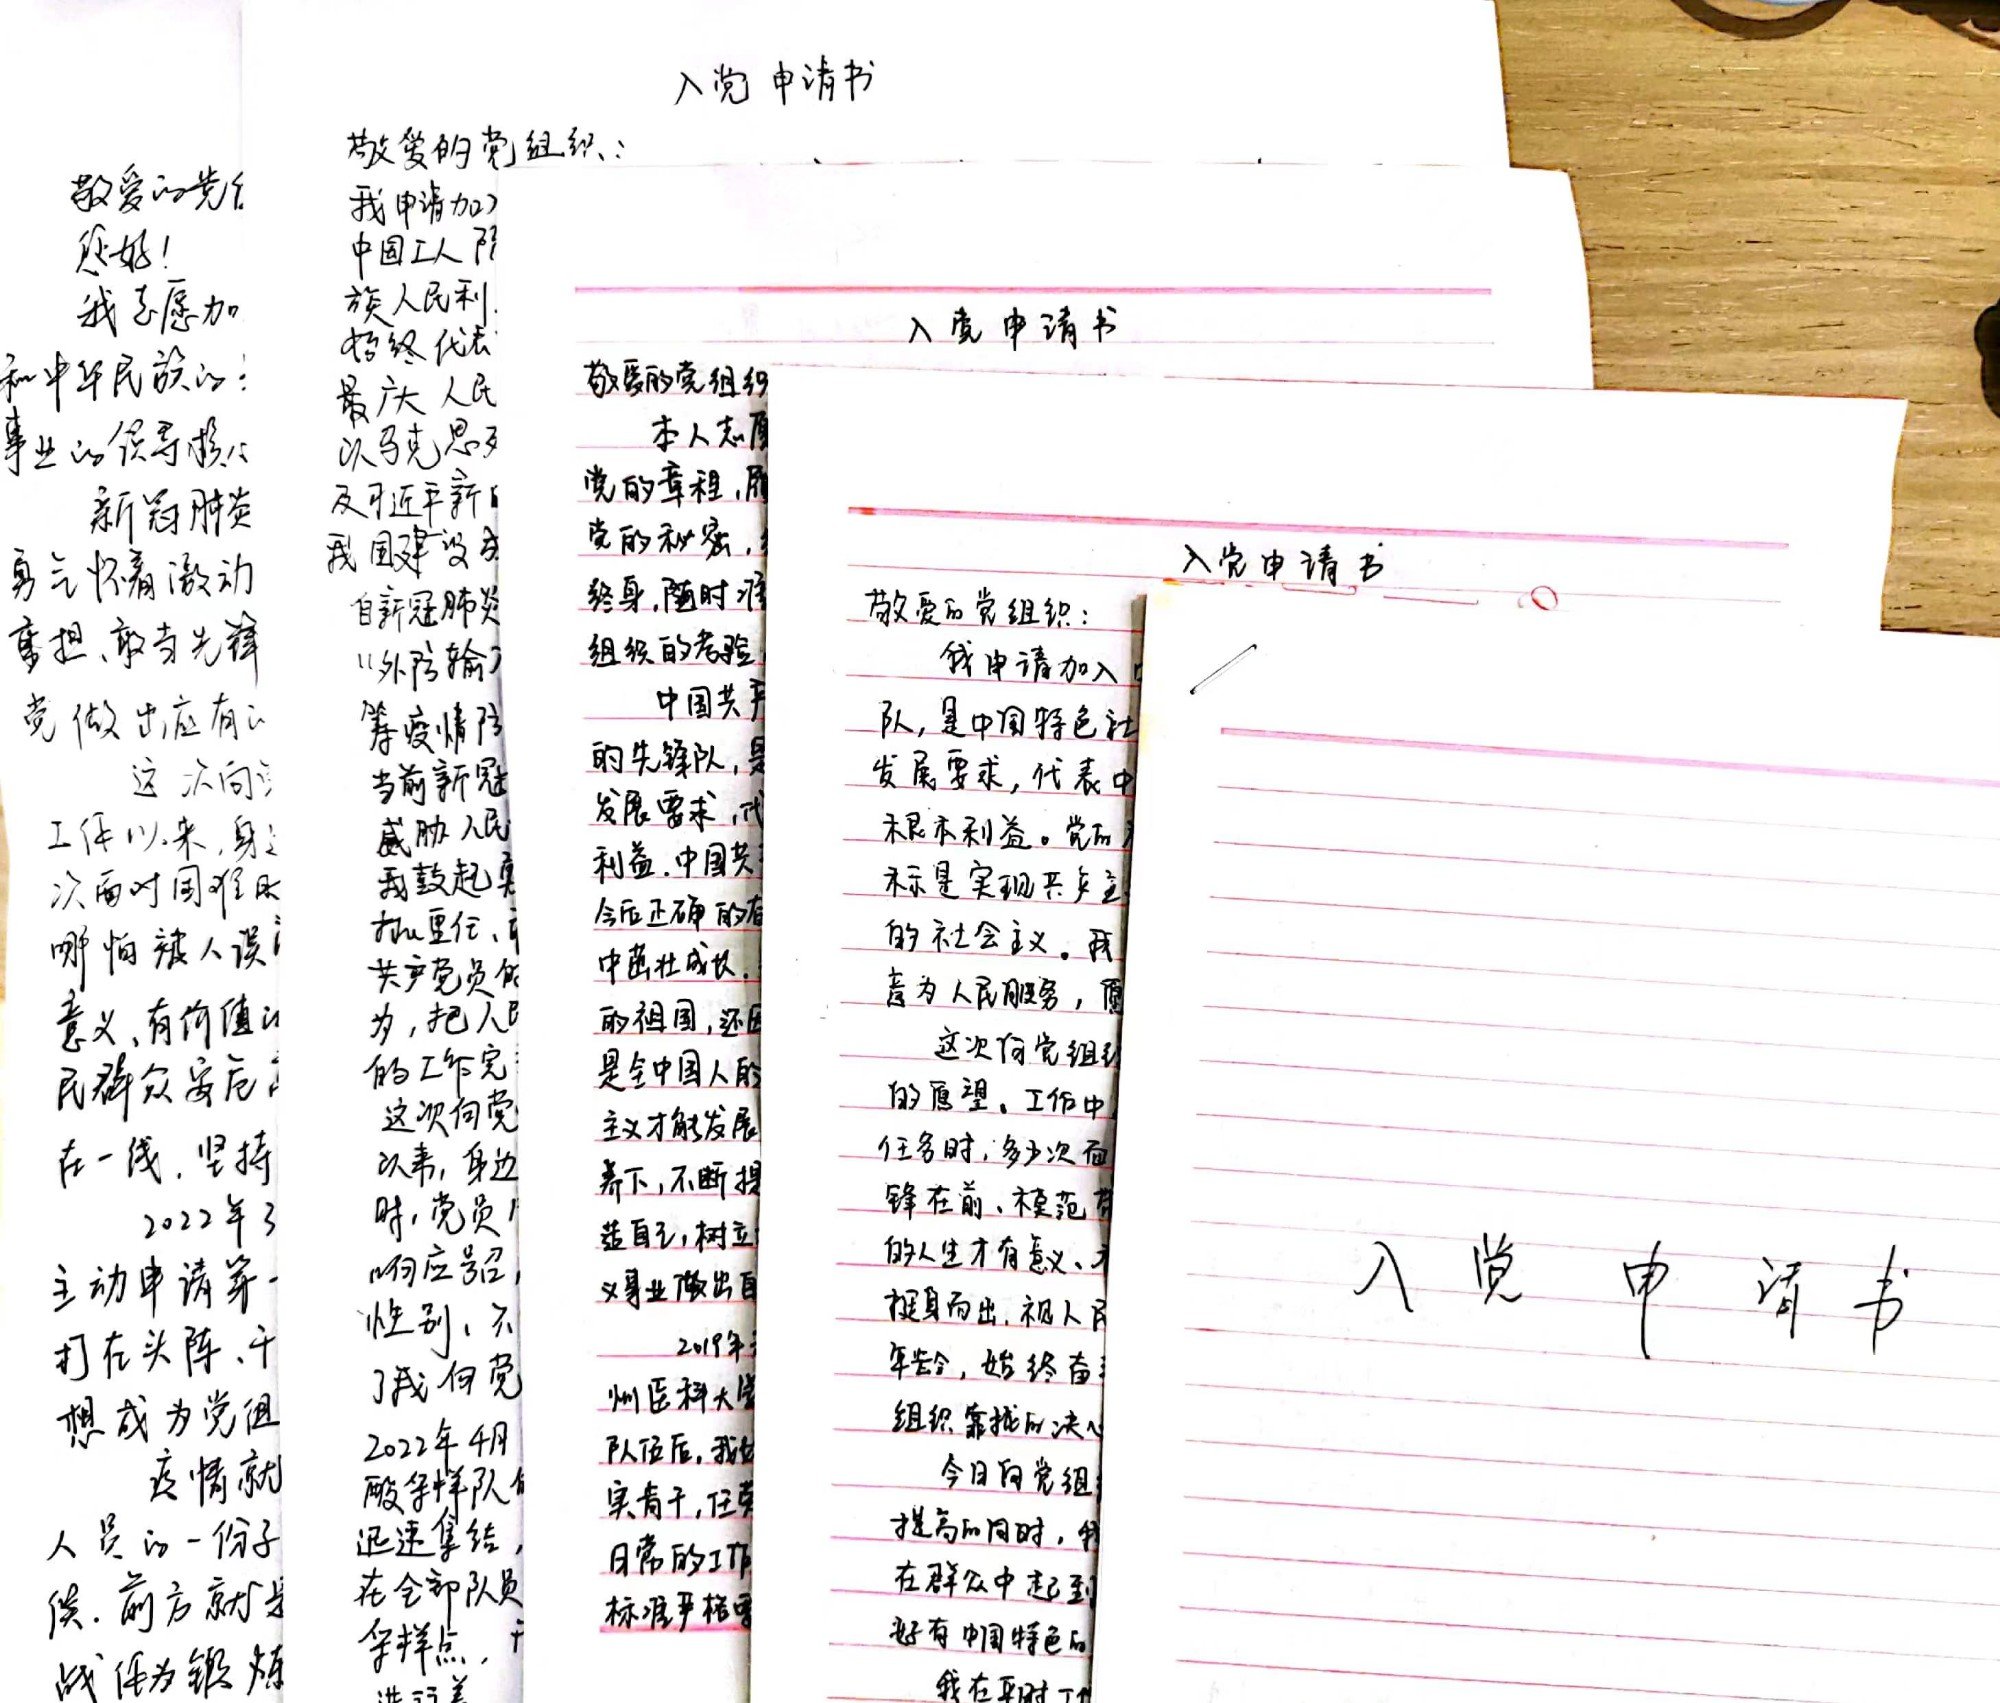 敬爱的党
您好！
我志愿加
和中华民族的
事业的领导核心
新冠肺炎
勇气怀着激动
重担、敢当先锋
党做出应有的
这次向
工作以来，身
次面对困难
哪怕被人误
意义、有价值的
民群众安危
在一线，坚持
2022年3
主动申请第一
打在头阵、干
想成为党组
疫情就
人员的一份子
候，前方就是
战任为锻炼
入党申请书
敬爱的党组织：
我申请加入
中国工人阶
族人民利
始终代表
最广大人民
以马克思
及习近平新时
我国建设成
自新冠肺炎
“外防输入
筹疫情防
当前新冠
威胁人民
我鼓起勇
担重任、
共产党员的
为，把人民
的工作完
这次向党
以来，身边
时，党员
响应号召，
性别、不
了我向党
2022年4月
酸采样队
迅速集结，
在全部队员
采样点，
入党申请书
敬爱的党组织
本人志愿
党的章程，履
党的秘密，
终身，随时准
组织的考验
中国共产
的先锋队，是
发展要求，代
利益．中国共
今后正确的
中茁壮成长．
的祖国，还
是全中国人的
主义才能发展
养下，不断提
造自己，树立
义事业做出自
2019年
州医科大学
队伍后，我
实肯干，任劳
日常的工作
标准严格要
入党申请书
敬爱的党组织：
我申请加入中
队，是中国特色社
发展要求，代表中
根本利益。党的
标是实现共产主
的社会主义。我
意为人民服务，愿
这次向党组织
的愿望。工作中
任务时，多少次面
锋在前、模范带
的人生才有意义、
挺身而出，视人民
年龄，始终奋
组织靠拢的决心
今日向党组
提高的同时，我
在群众中起到
好有中国特色的
我在平时工作
入党申请书